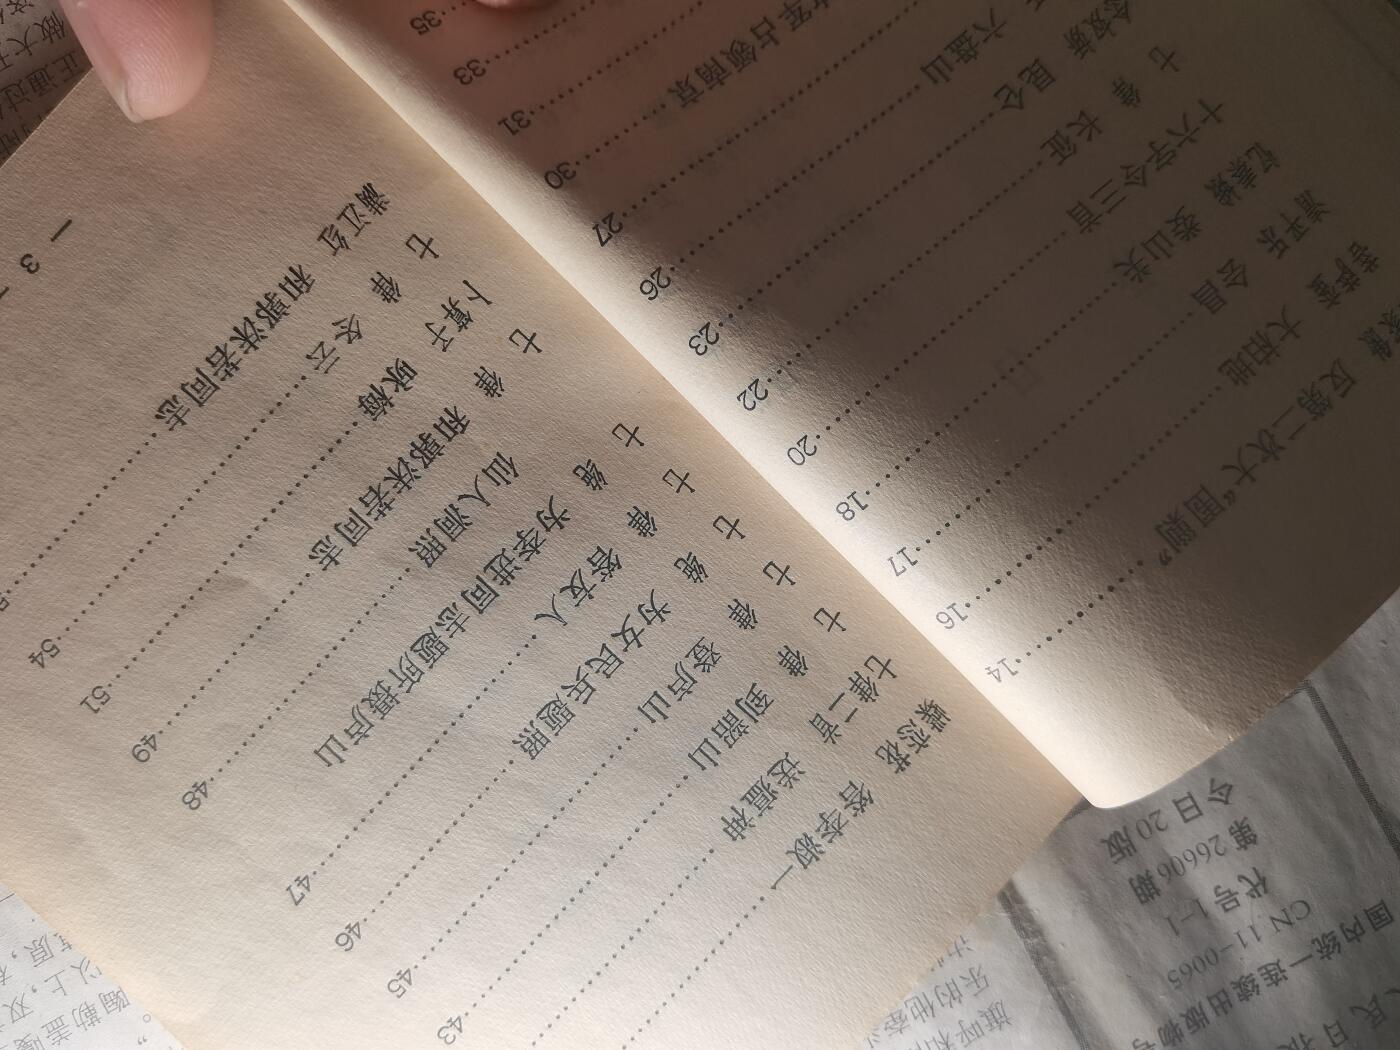 反第二次大“围剿”……14
菩萨蛮 大柏地……16
清平乐 会昌……17
忆秦娥 娄山关……18
十六字令三首……20
七律 长征……22
念奴娇 昆仑……23
六盘山……26
军占领南京……27
30
31
33
35
蝶恋花 答李淑一……
七律二首 送瘟神……
七律 到韶山……43
七律 登庐山……45
七绝 为女民兵题照……46
七律 答友人……47
七绝 为李进同志题所摄庐山
仙人洞照……48
七律 和郭沫若同志……49
卜算子 咏梅……51
七律 冬云……54
满江红 和郭沫若同志……
— 3 —
民日报
国内统一连续出版物号
CN 11-0065
代号1-1
第26606期
今日20版